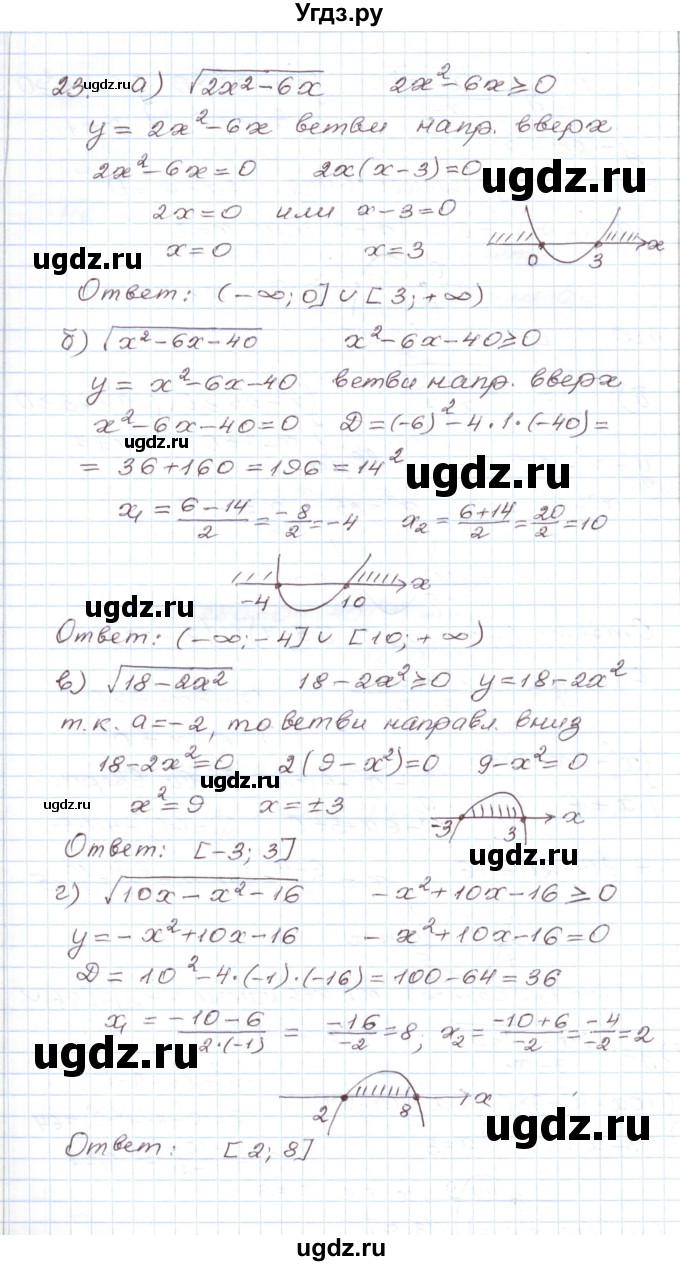 Угдз.ру
23. ugdz.ru а) √(2x²-6x) 2x²-6x≥0
y = 2x²-6x ветви напр. вверх
2x²-6x=0 2x(x-3)=0 ugdz.ru
2x=0 или x-3=0
ugdz.ru x=0 x=3
0 3 x
Ответ: (-∞; 0] ∪ [3; +∞)
б) √(x²-6x-40) x²-6x-40≥0
y = x²-6x-40 ветви напр. вверх
x²-6x-40=0 D=(-6)²-4·1·(-40)=
ugdz.ru
= 36+160=196=14² ugdz.ru
x₁ = (6-14)/2 = -8/2 = -4 x₂ = (6+14)/2 = 20/2 = 10
-4 10 x
ugdz.ru
Ответ: (-∞; -4] ∪ [10; +∞)
в) √(18-2x²) 18-2x²≥0 y=18-2x²
т.к. a=-2, то ветви направл. вниз
18-2x²=0 2(9-x²)=0 9-x²=0
ugdz.ru
ugdz.ru x²=9 x=±3
-3 3 x
Ответ: [-3; 3] ugdz.ru
г) √(10x-x²-16) -x²+10x-16≥0
y=-x²+10x-16 -x²+10x-16=0
D = 10²-4·(-1)·(-16)=100-64=36
x₁ = (-10-6)/(2·(-1)) = -16/-2 = 8; x₂ = (-10+6)/-2 = -4/-2 = 2
ugdz.ru
2 8 x
ugdz.ru
Ответ: [2; 8]
ugdz.ru